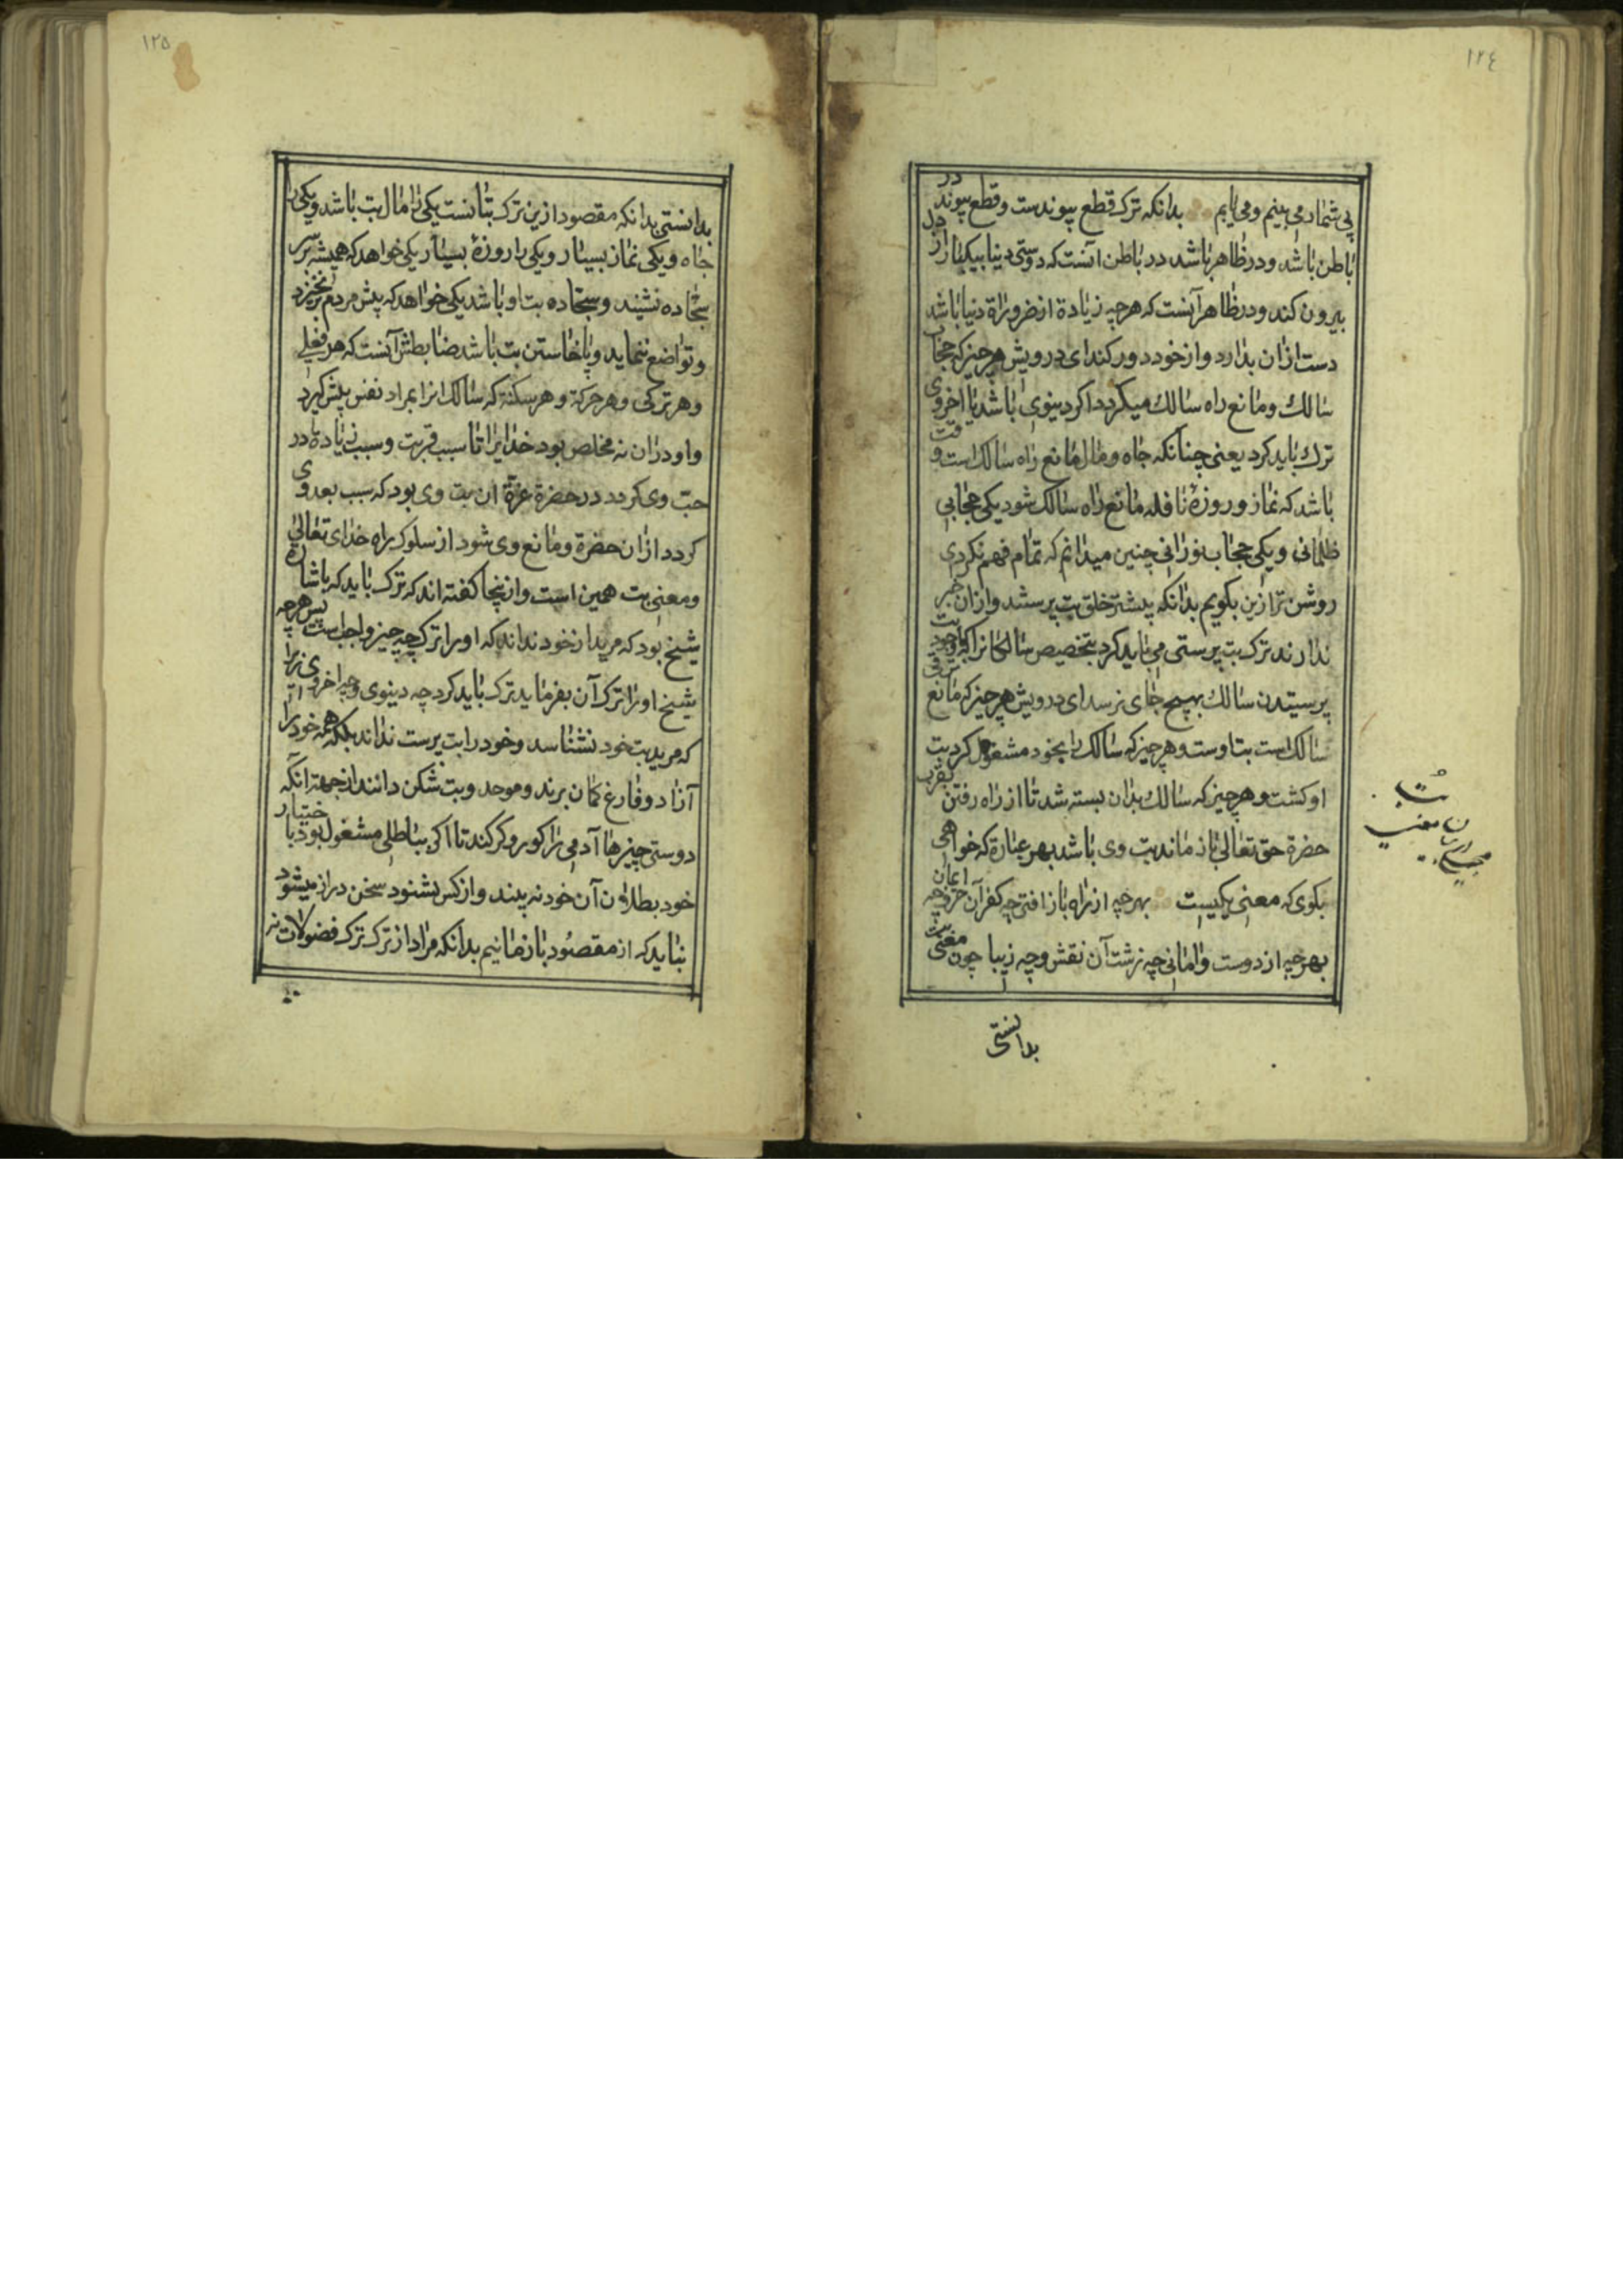 ١٢٤
بی شمار می بینم و می یابم بدانکه ترک قطع پیوندست و قطع پیوند در
باطن باشد و در ظاهر باشد در باطن آنست که دوستی دنیا بیکبار از دل
بیرون کند و در ظاهر آنست که هرچه زیادة از ضروراة دنیا باشد
دست ازان بدارد و از خود دور کند ای درویش هر چیز که حجاب
سالک و مانع راه سالک میگردد اگر دینوی باشد یا اخروی
ترک باید کرد یعنی چنانکه جاه و مال مانع راه سالک است وقت
باشد که نماز و روزهٔ نافله مانع راه سالک شود یکی حجابی
ظلمانی و یکی حجاب نورانی چنین میدانم که تمام فهم نکردی
روشن تر ازین بگویم بدانکه بیشتر خلق بت پرستند و ازان خبر
ندارند ترک بت پرستی می باید کرد بتخصیص سالکانرا که با وجود بت
پرستیدن سالک بهیچ جای نرسد ای درویش هر چیز که مانع ترقی
سالک است بت اوست و هر چیز که سالک را بخود مشغول کرد بت
او گشت و هر چیز که سالک بدان بسته شد تا از راه رفتن بقرب
حضرة حق تعالی باز ماند بت وی باشد بهر عبارة که خواهی
بگوی که معنی یکیست بهرچه از راه باز افتی چه کفر آن حرف و چه ایمان
بهرچه از دوست وامانی چه زشت آن نقش و چه زیبا چون معنی بت
بدانستی
بت
١٢٥
بدانستی بدانکه مقصود ازین ترک بتانست یکی را مال بت باشد و یکی را
جاه و یکی نماز بسیار و یکی را روزهٔ بسیار یکی خواهد که همیشه بر سر
سجاده نشیند و سجاده بت او باشد یکی خواهد که پیش مردم برنخیزد
و تواضع ننماید و پا خاستن بت باشد ضابطش آنست که هر فعلی
و هر ترکی و هر حرکة و هر سکنة که سالک انرا بمراد نفس پیش گیرد
و او دران نه مخلص بود خدایرا تا سبب قربت و سبب زیادة در
حب وی گردد در حضرة عزة ان بت وی بود که سبب بعد وی
گردد ازان حضرة و مانع وی شود از سلوک براه خدای تعالی
و معنی بت همین است و ازینجا گفته اند که ترک باید که باشارة
شیخ بود که مرید از خود نداند که او را ترک چه چیز واجب است پس هرچه
شیخ او را ترک آن بفرماید ترک باید کرد چه دینوی و چه اخروی زیرا
که مرید بت خود نشناسد و خود را بت پرست نداند بلکه همه خود را
آزاد و فارغ گمان برند و موحد و بت شکن دانند ازجهة انکه
دوستی چیزها آدمی را کور و کر کند تا اگر بباطلی مشغول بود باختیار
خود بطلان آن خود نه بیند و از کس نشنود سخن دراز میشود
نباید که از مقصود باز مانیم بدانکه مراد از ترک ترک فضولات نه